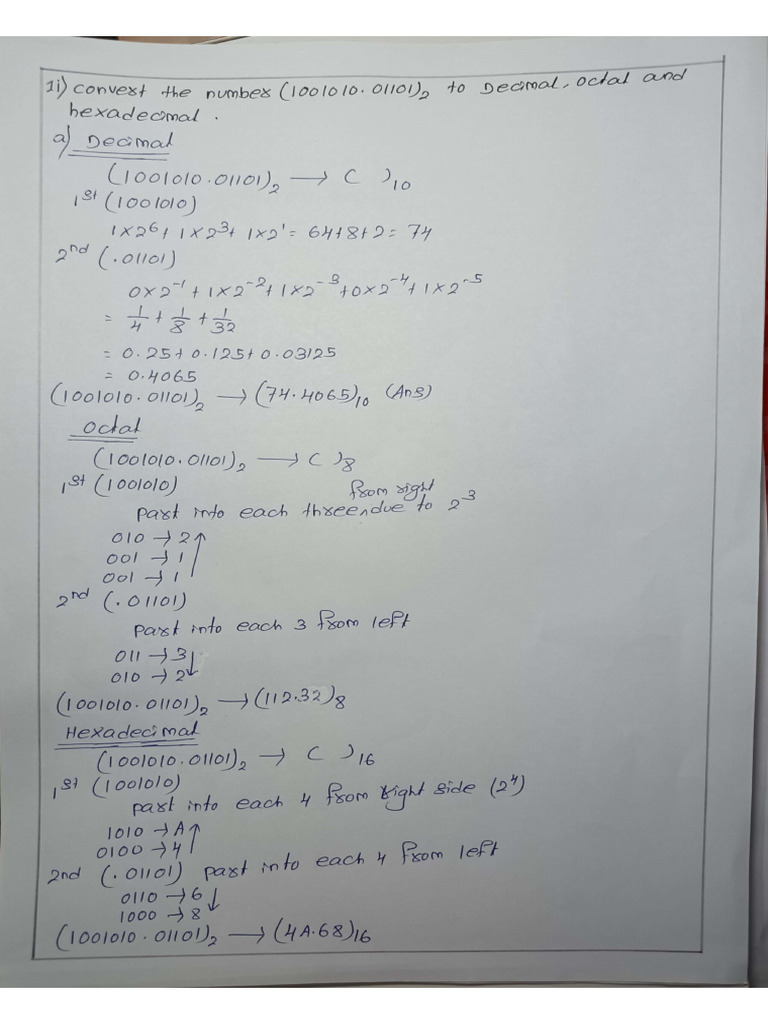 1i) convert the number (1001010.01101)₂ to Decimal, octal and
hexadecimal.
a) Decimal
(1001010.01101)₂ → ( )₁₀
1st (1001010)
1×2⁶ + 1×2³ + 1×2¹ = 64+8+2 = 74
2nd (.01101)
0×2⁻¹ + 1×2⁻² + 1×2⁻³ + 0×2⁻⁴ + 1×2⁻⁵
= 1/4 + 1/8 + 1/32
= 0.25 + 0.125 + 0.03125
= 0.4065
(1001010.01101)₂ → (74.4065)₁₀ (Ans)
octal
(1001010.01101)₂ → ( )₈
1st (1001010)
from right
part into each three ∧ due to 2³
010 → 2 ↑
001 → 1
001 → 1
2nd (.01101)
part into each 3 from left
011 → 3 ↓
010 → 2
(1001010.01101)₂ → (112.32)₈
Hexadecimal
(1001010.01101)₂ → ( )₁₆
1st (1001010)
part into each 4 from right side (2⁴)
1010 → A ↑
0100 → 4
2nd (.01101) part into each 4 from left
0110 → 6 ↓
1000 → 8
(1001010.01101)₂ → (4A.68)₁₆